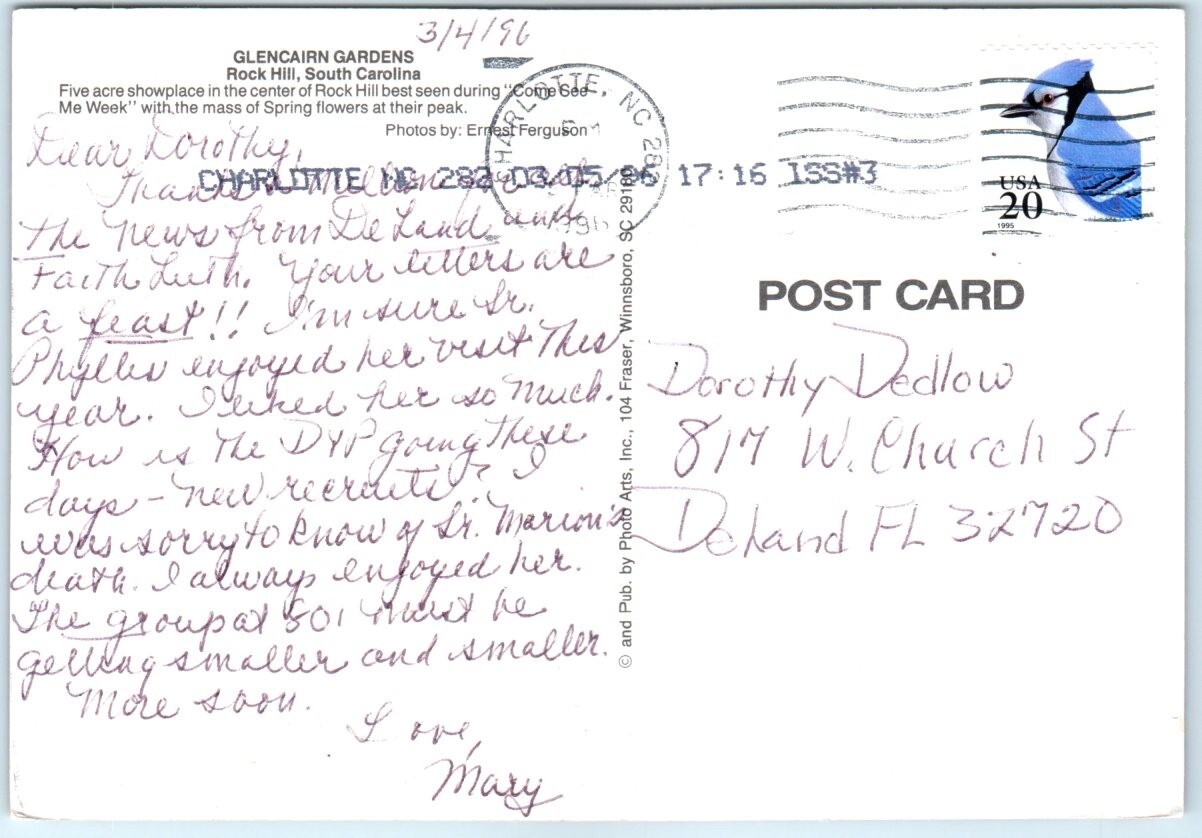 3/4/96
GLENCAIRN GARDENS
Rock Hill, South Carolina
Five acre showplace in the center of Rock Hill best seen during "Come See
Me Week" with the mass of Spring flowers at their peak.
Photos by: Ernest Ferguson
Dear Dorothy,
Thanks a million for all
the news from DeLand and
Faith Luth. Your letters are
a feast!! I'm sure Sr.
Phyllis enjoyed her visit this
year. I liked her so much.
How is the DYP going these
days - new recruits? I
was sorry to know of Sr. Marion's
death. I always enjoyed her.
The group at 801 must be
getting smaller and smaller.
More soon.
Love,
Mary
CHARLOTTE, NC 282
1996
CHARLOTTE NC 282 03/05/96 17:16 ISS#3
© and Pub. by Photo Arts, Inc., 104 Fraser, Winnsboro, SC 29180
USA
20
1995
POST CARD
Dorothy Dedlow
817 W. Church St
DeLand FL 32720